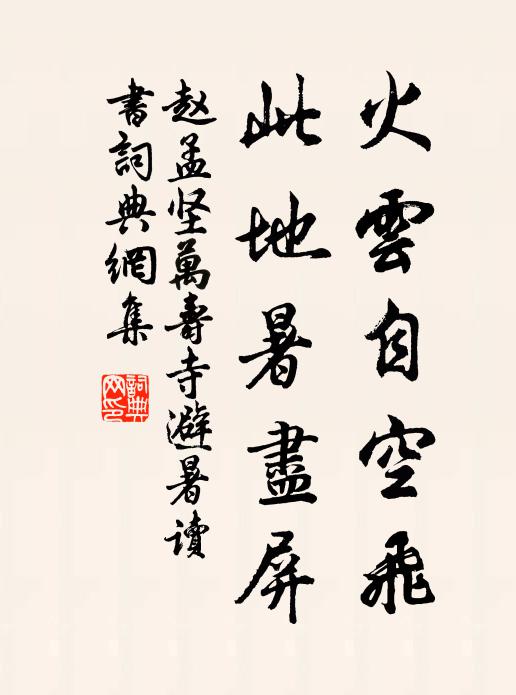 火雲自空飛
此地暑盡屏
赵孟坚萬壽寺避暑读
書詞典網集
詞典
网印